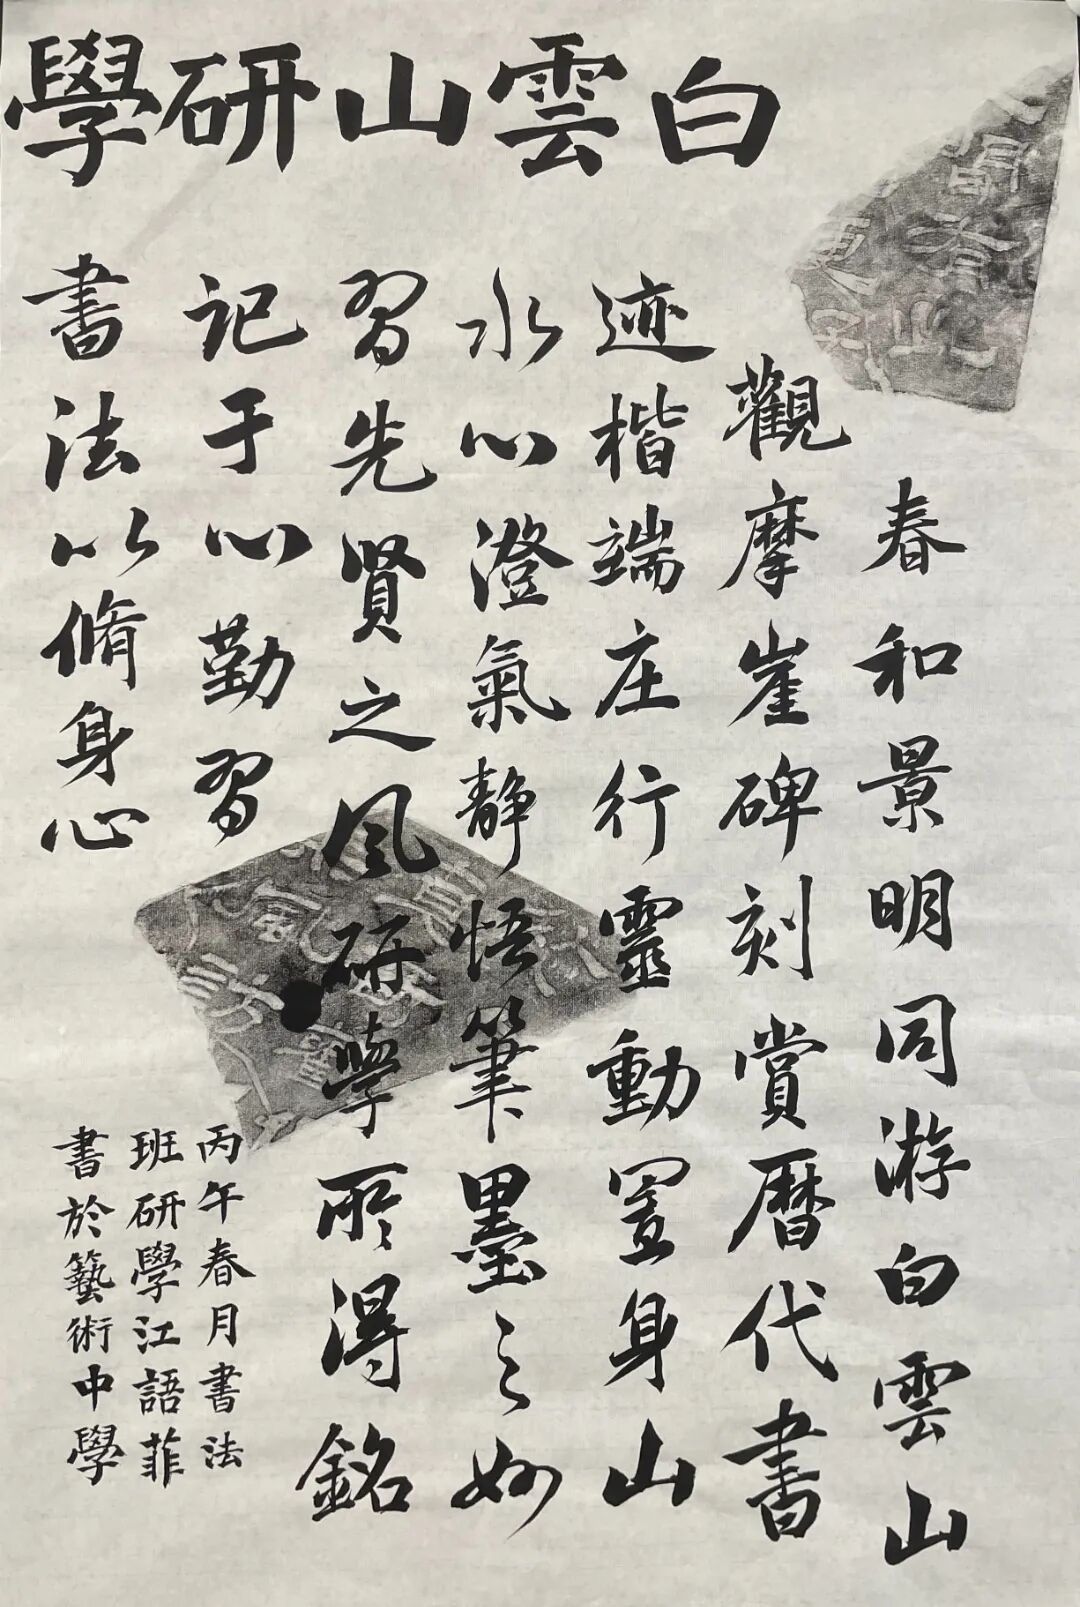 白雲山研學
春和景明同游白雲山
觀摩崖碑刻賞曆代書
迹楷端庄行靈動置身山
水心澄氣静悟筆墨之妙
習先賢之风研學所得銘
记于心勤習
書法以脩身心
丙午春月書法
班研學江語菲
書於藝術中學